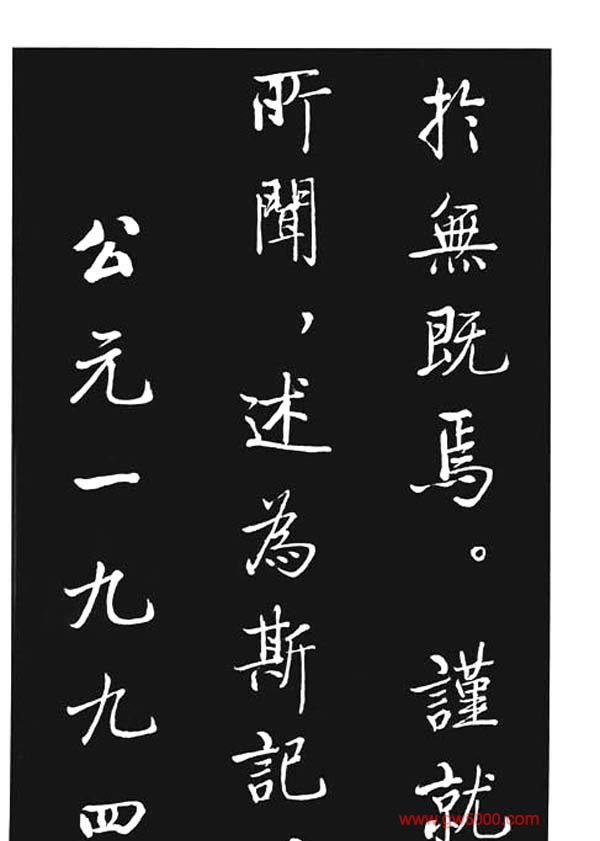 於無既焉。謹就
所聞，述為斯記，
公元一九九四
www.gw5000.com